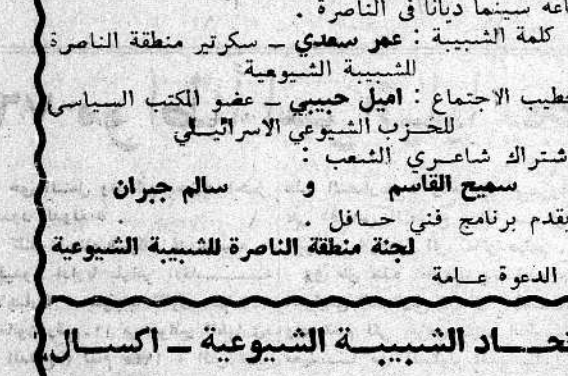 اعة سينما ديانا فى الناصرة .
كلمة الشبيبة : عمر سعدي ــ سكرتير منطقة الناصرة
للشبيبة الشيوعية
خطيب الاجتماع : اميل حبيبي ــ عضو المكتب السياسى
للحـــزب الشيوعي الاسرائيـــلي
شتراك شاعـــري الشعب :
سميح القاسم و سالم جبران
يقدم برنامج فني حـــافل .
لجنة منطقة الناصرة للشبيبة الشيوعية
الدعوة عـــامة
تحـــاد الشبيبـــة الشيوعية ــ اكســـال